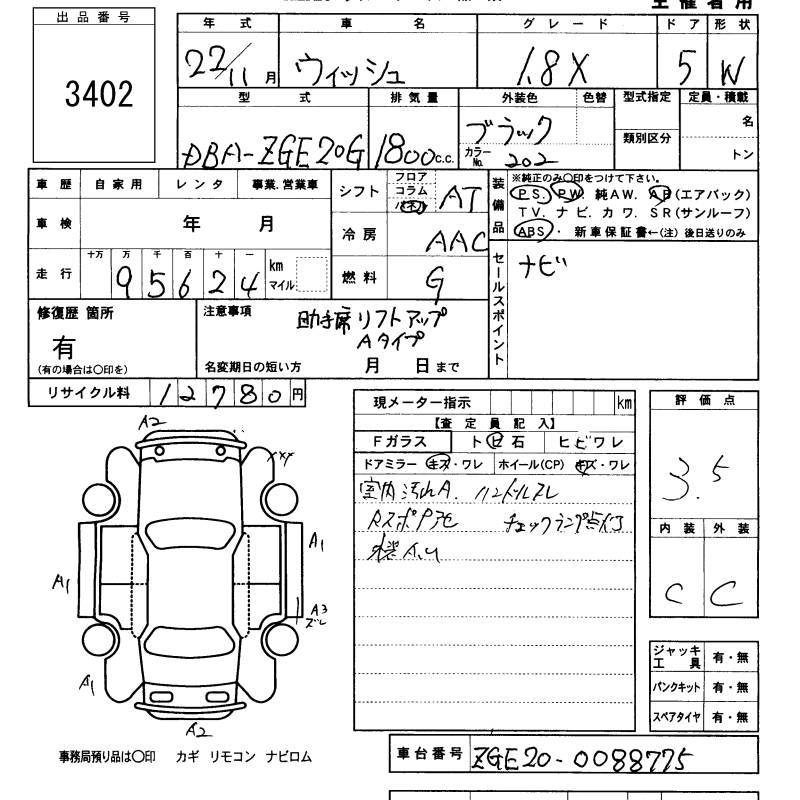 主催者用
出品番号
3402
年式 車名 グレード ドア 形状
22/11月 ウィッシュ 1.8X 5 W
型式 排気量 外装色 色替 型式指定 定員・積載
DBA-ZGE20G 1800c.c. ブラック 類別区分 名
カラーNo. 202 トン
車歴 自家用 レンタ 事業.営業車
車検 年 月
走行 十万 万 千 百 十 一
95624 km マイル
シフト フロア コラム パネル AT
冷房 AAC
燃料 G
装備品
※純正のみ〇印をつけて下さい。
P S. P W. 純A W. A B (エアバック)
T V. ナ ビ. カ ワ. S R (サンルーフ)
ABS ・ 新車保証書←(注) 後日送りのみ
セールスポイント
ナビ
修復歴 箇所
有
(有の場合は〇印を)
注意事項
助手席リフトアップ
Aタイプ
名変期日の短い方 月 日まで
リサイクル料 12780円
現メーター指示 km
【査定員記入】
Fガラス ト ビ 石 ヒビワレ
ドアミラー キズ・ワレ ホイール(CP) キズ・ワレ
室内汚れA. ハンドルスレ
チェックランプ点灯
評価点
3.5
内装 外装
C C
A2
XXX
A1
A1
A3
ズレ
A1
A2
ジャッキ工具 有・無
パンクキット 有・無
スペアタイヤ 有・無
事務局預り品は〇印 カギ リモコン ナビロム
車台番号 ZGE20-0088775